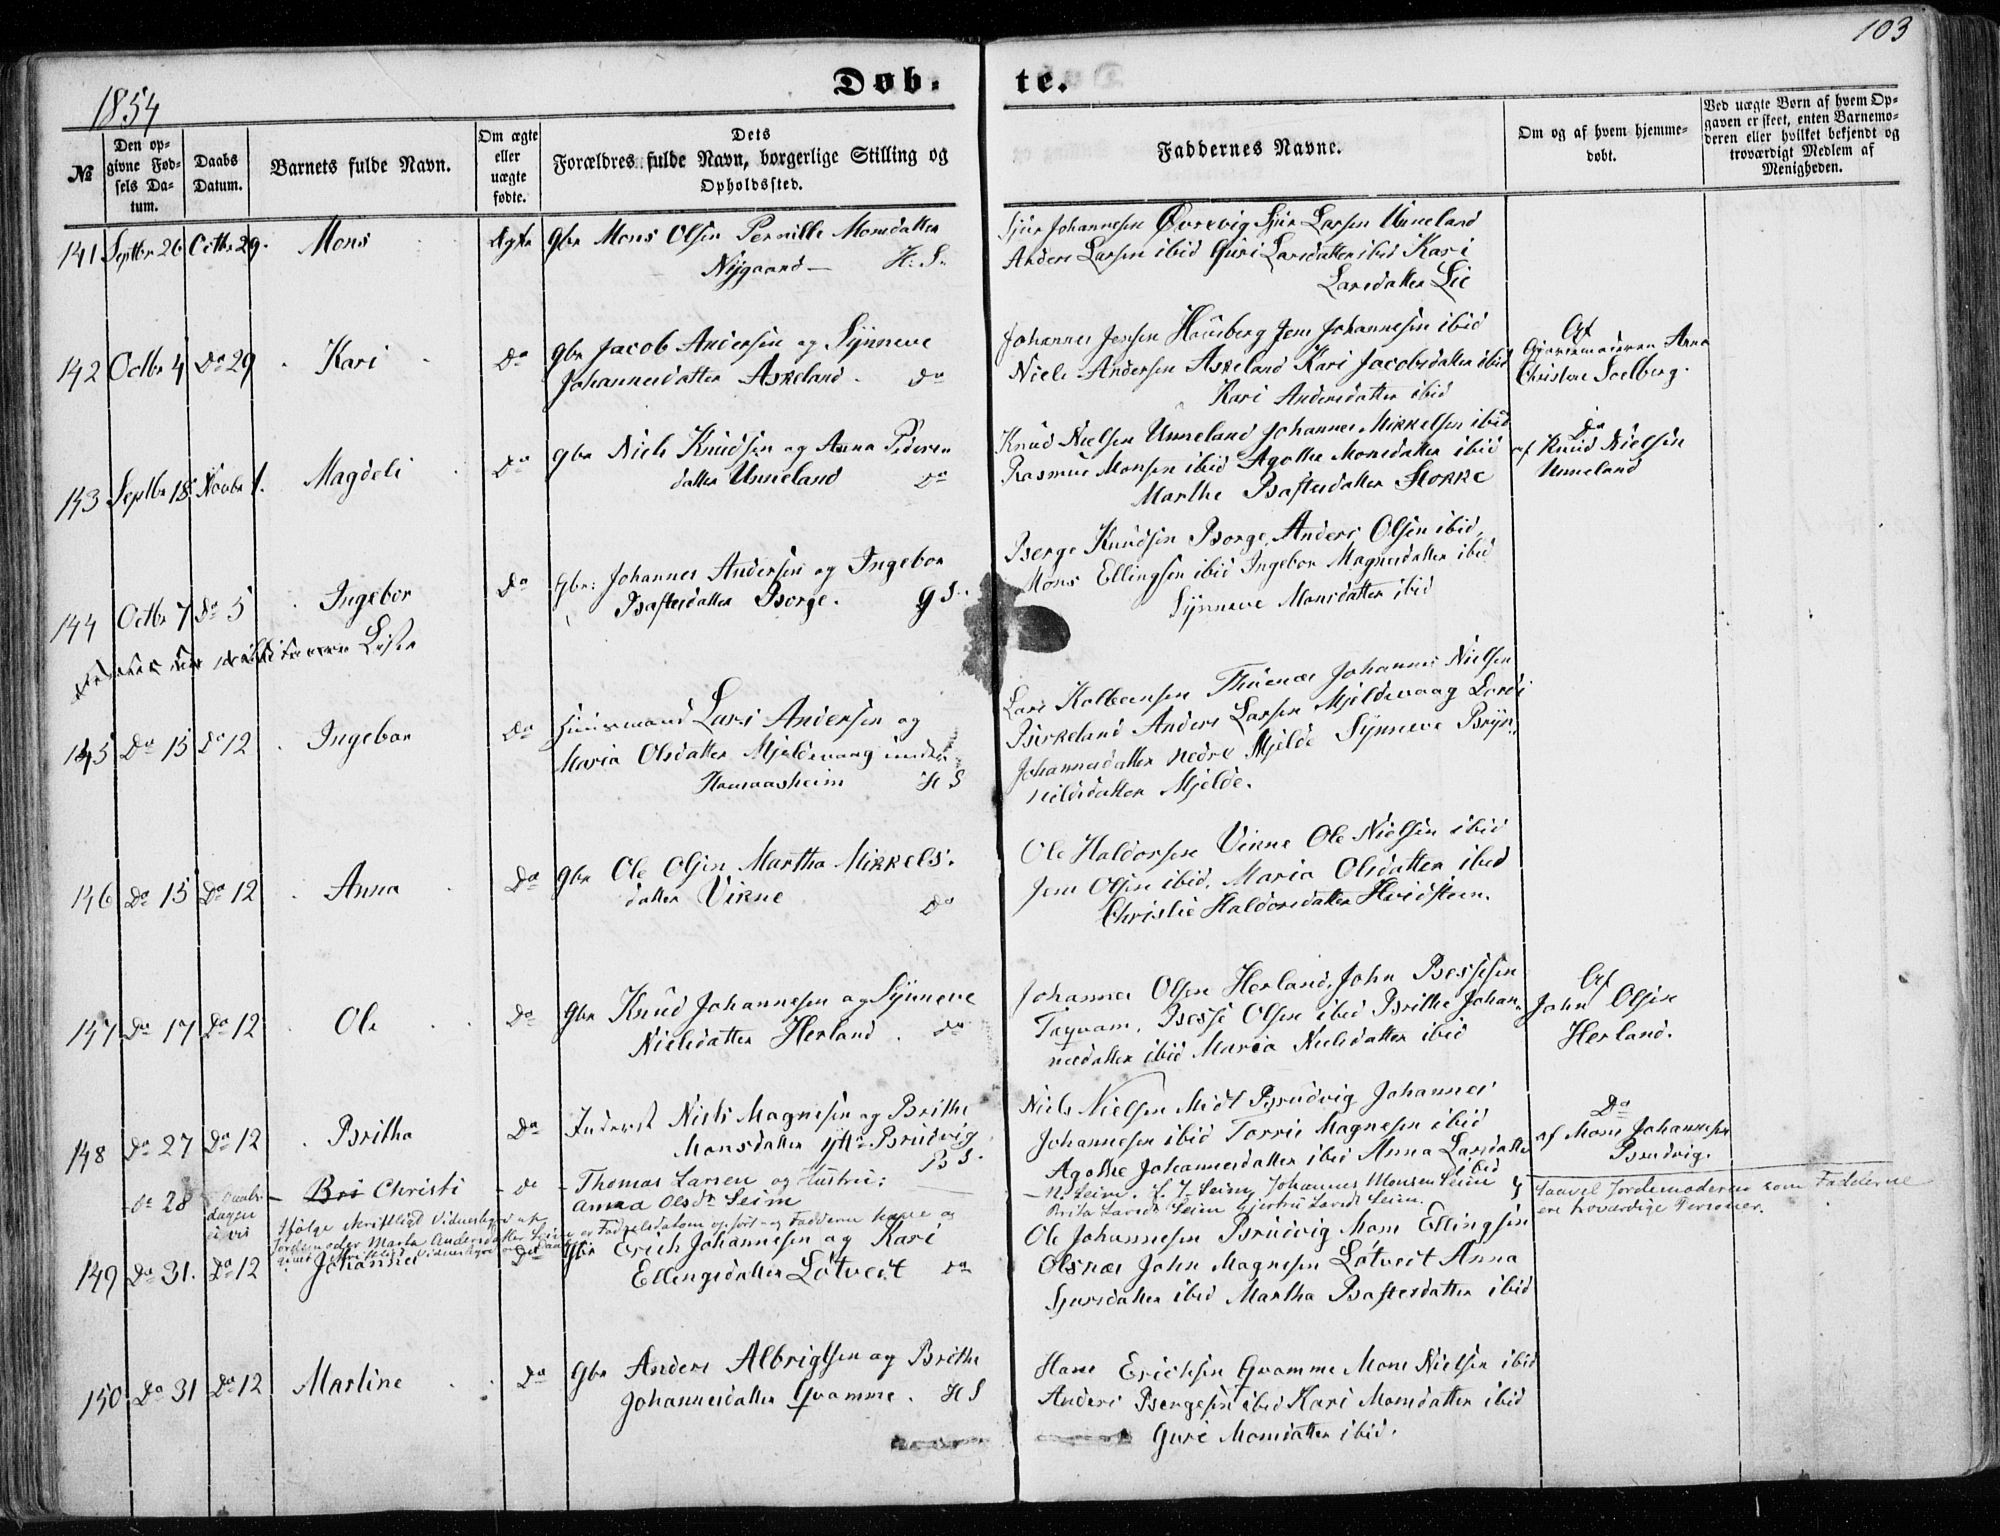 103
Døb- te.
1854
№
Den op-
givne Fød-
sels Da-
tum.
Daabs
Datum.
Barnets fulde Navn.
Om ægte
eller
uægte
fødte.
Dets
Forældres fulde Navn, borgerlige Stilling og
Opholdssted.
Faddernes Navne.
Om og af hvem hjemme-
døbt.
Ved uægte Børn af hvem Op-
gaven er skeet, enten Barnemo-
deren eller hvilket bekjendt og
troværdigt Medlem af
Menigheden.
141 Septbr 26 Octbr 29. Mons Ægte Gbr Mons Olsen Pernille Monsdatter
Nygaard H: S.
Sjur Johannesen Øvrevig Sjur Larsen Unneland
Anders Larsen ibid Guri Larsdatter ibid Kari
Larsdatter Lie
142 Octbr 4 Do 29 Kari Do Gbr Jacob Andersen og Synneve
Johannesdatter Askeland. Do
Johannes Jensen Hauberg Jens Johannesen ibid
Niels Andersen Askeland Kari Jacobsdatter ibid
Kari Andersdatter ibid
Af
Gjordemoderen Anna
Christine Soelberg.
143 Septbr 18 Novbr 1. Magdeli Do Gbr Niels Knudsen og Anna Peders
datter Unneland Do
Knud Nielsen Unneland Johannes Mikkelsen ibid
Rasmus Monsen ibid Agathe Monsdatter ibid
Marthe Baftesdatter Stokke
Do
af Knud Nielsen
Unneland
144 Octbr 7 Do 5 Ingebor Do Gbr: Johannes Andersen og Ingebor
Baftesdatter Borge. G S.
Berge Knudsen Borge, Anders Olsen ibid,
Mons Ellingsen ibid Ingebor Magnesdatter ibid
Synneve Monsdatter ibid
Liste
145 Do 15 Do 12 Ingebor Do Huusmand Lars Andersen og
Maria Olsdatter Mjeldevaag under
Hamaasheim H S
Lars Kolbensen Thuenæs Johannes Nielsen
Birkeland Anders Larsen Mjeldevaag
Johannesdatter nedre Mjelde Synneve Bryn-
nildsdatter Mjelde.
146 Do 15 Do 12 Anna Do Gbr Ole Olsen Martha Mikkels-
datter Vikne Do
Ole Haldorsen Vikne Ole Nielsen ibid
Jens Olsen ibid. Maria Olsdatter ibid
Christie Haldorsdatter Hvidsteen.
147 Do 17 Do 12 Ole Do Gbr Knud Johannesen og Synneve
Nielsdatter Herland Do
Johannes Olsen Herland, John Bessesen
Tøqvam, Besse Olsen ibid Brithe Johan-
nesdatter ibid Maria Nielsdatter ibid
Af
John Olsen
Herland.
148 Do 27 Do 12 Britha Do Inderst Niels Magnesen og Brithe
Monsdatter Brudvig
B S.
Niels Nielsen Midt Brudvig Johannes
Johannesen ibid Torrie Magnesen ibid
Agathe Johannesdatter ibid Anna Larsdatter
ibid
Do
af Mons Johannesen
Brudvig.
do 28 Daabs-
dagen
ei vis
Bri Christi do Thomas Larsen og Hustru:
Anna Olsdr Seim
N. Seim. L. J. Seim, Johannes Monsen Seim
Brita Larsdr Seim Gjertru Larsdr Seim.
Saavel Jordemoderen som Fadderne
ere troværdige Personer.
Ifølge skriftligt Vidnesbyrd af
Jordemoder Marta Andersdatter Seim er Fødselsdatum opført og Fadderne have og
givet skriftligt Vidnesbyrd om Daaben
149 Do 31. Do 12 Johannes Do Gbr Erich Johannesen og Kari
Ellingsdatter Lotveit Do
Ole Johannesen Brudvig Mons Ellingsen
Olsnæs John Magnesen Lotveit Anna
Sjursdatter ibid Martha Baftesdatter ibid
150 Do 31 Do 12 Martine Do Gbr Anders Albrigtsen og Brithe
Johannesdatter Qvamme. H S
Hans Ericksen Qvamme Mons Nielsen ibid
Anders Bergesen ibid Kari Monsdatter ibid
Guri Monsdatter ibid.